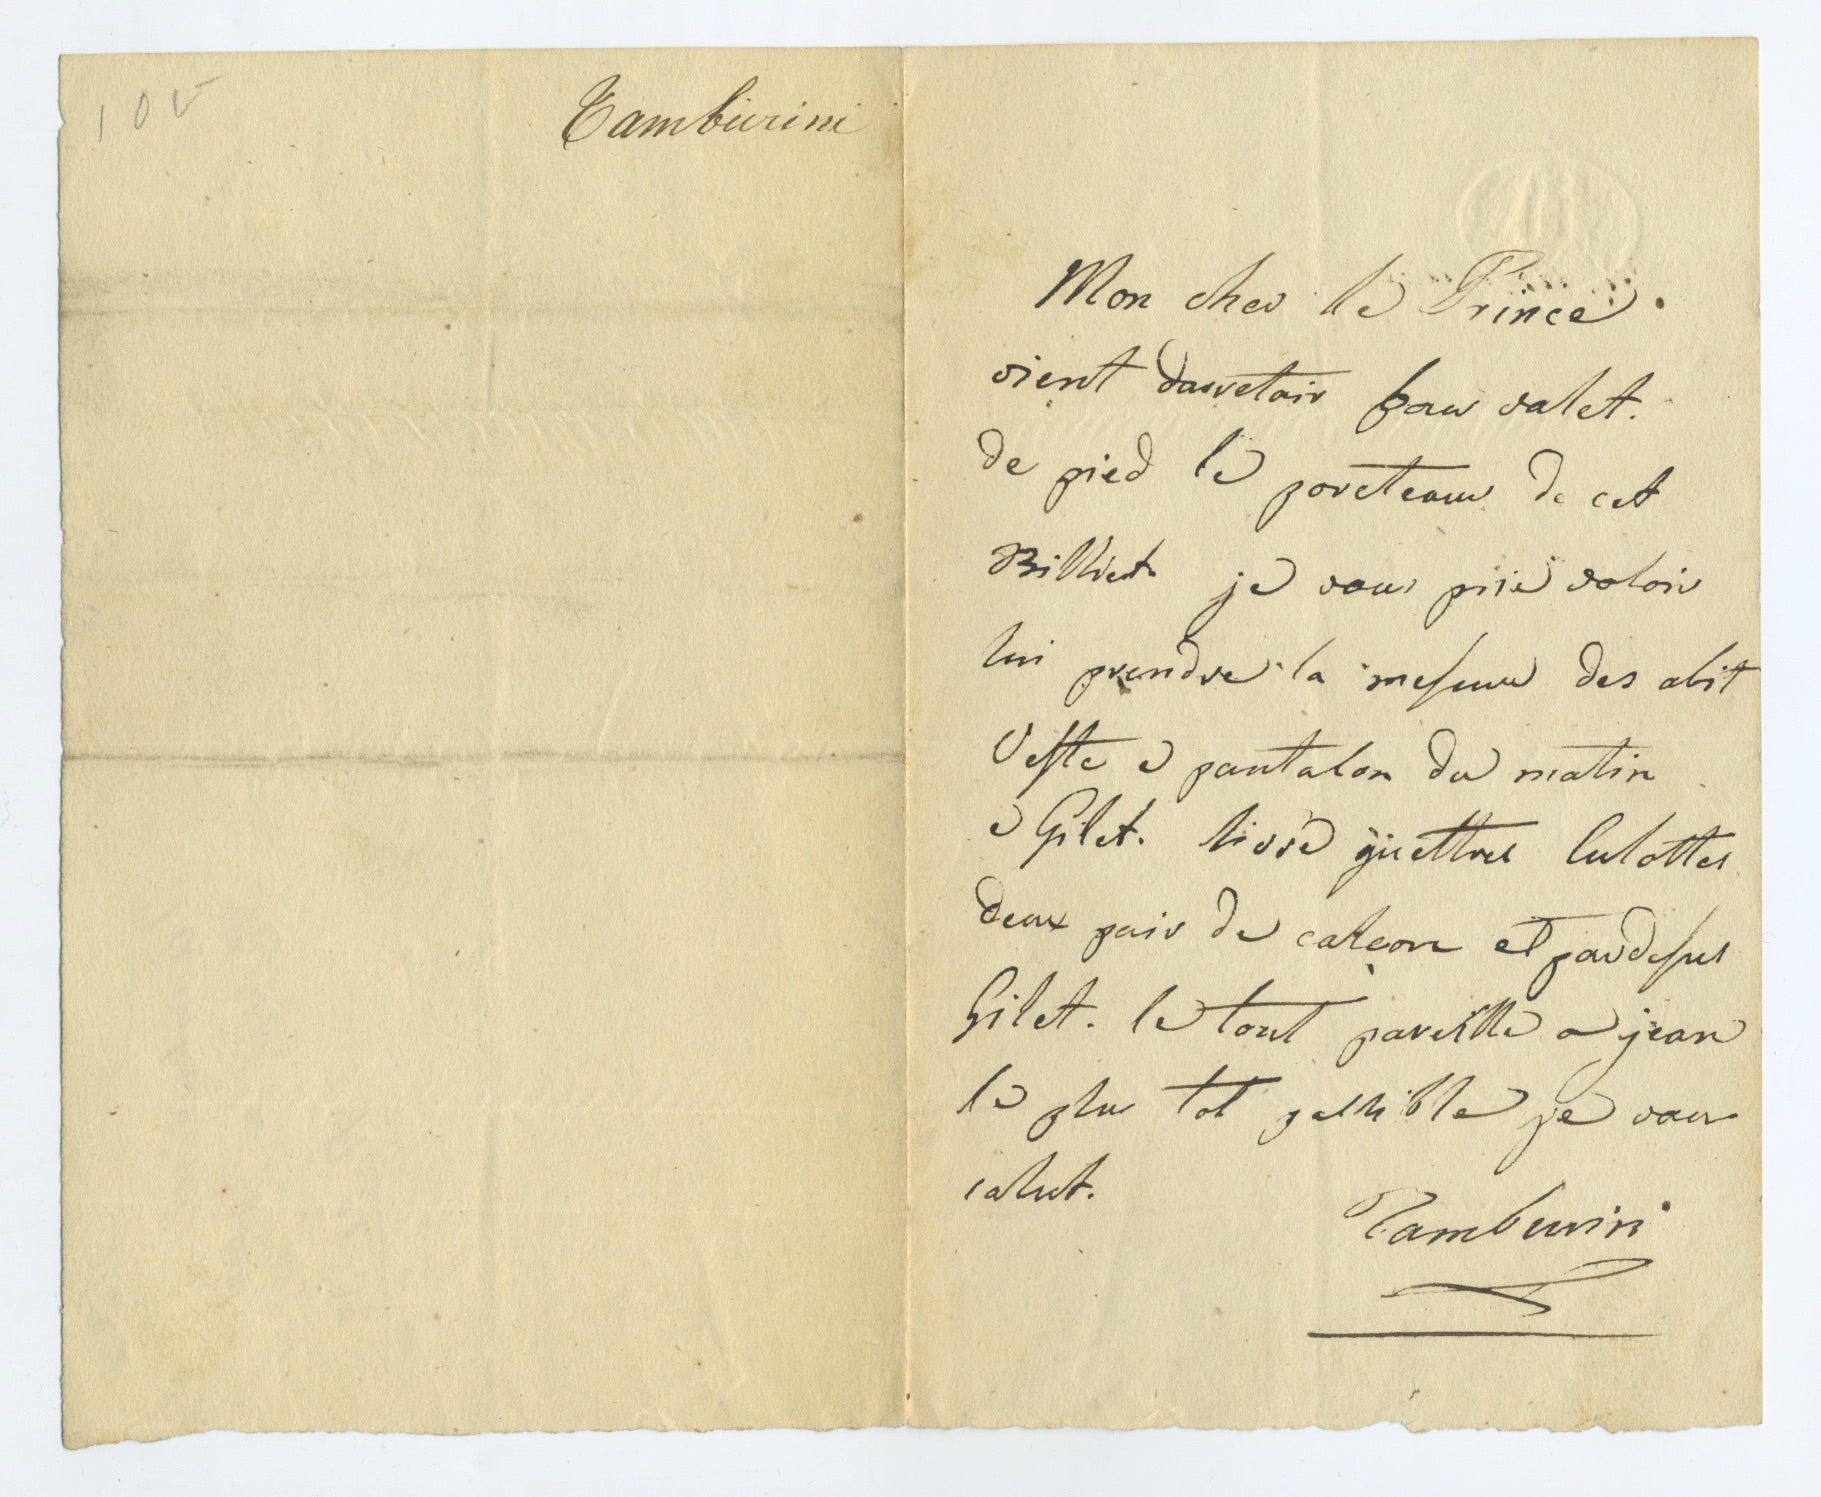 10
Tamburini
Mon cher le Prince
vient daretair pour valet.
de pied le poreteaur de cet
Billiet je vous prie voloir
lui prendre la mesure des abit
Veste e pantalon du matin
e Gilet. livré guettres Culottes
deux pair de caleçon et pardesus
Gilet. le tout pareille a jean
le plus tot possible je vous
salut.
Tamburini